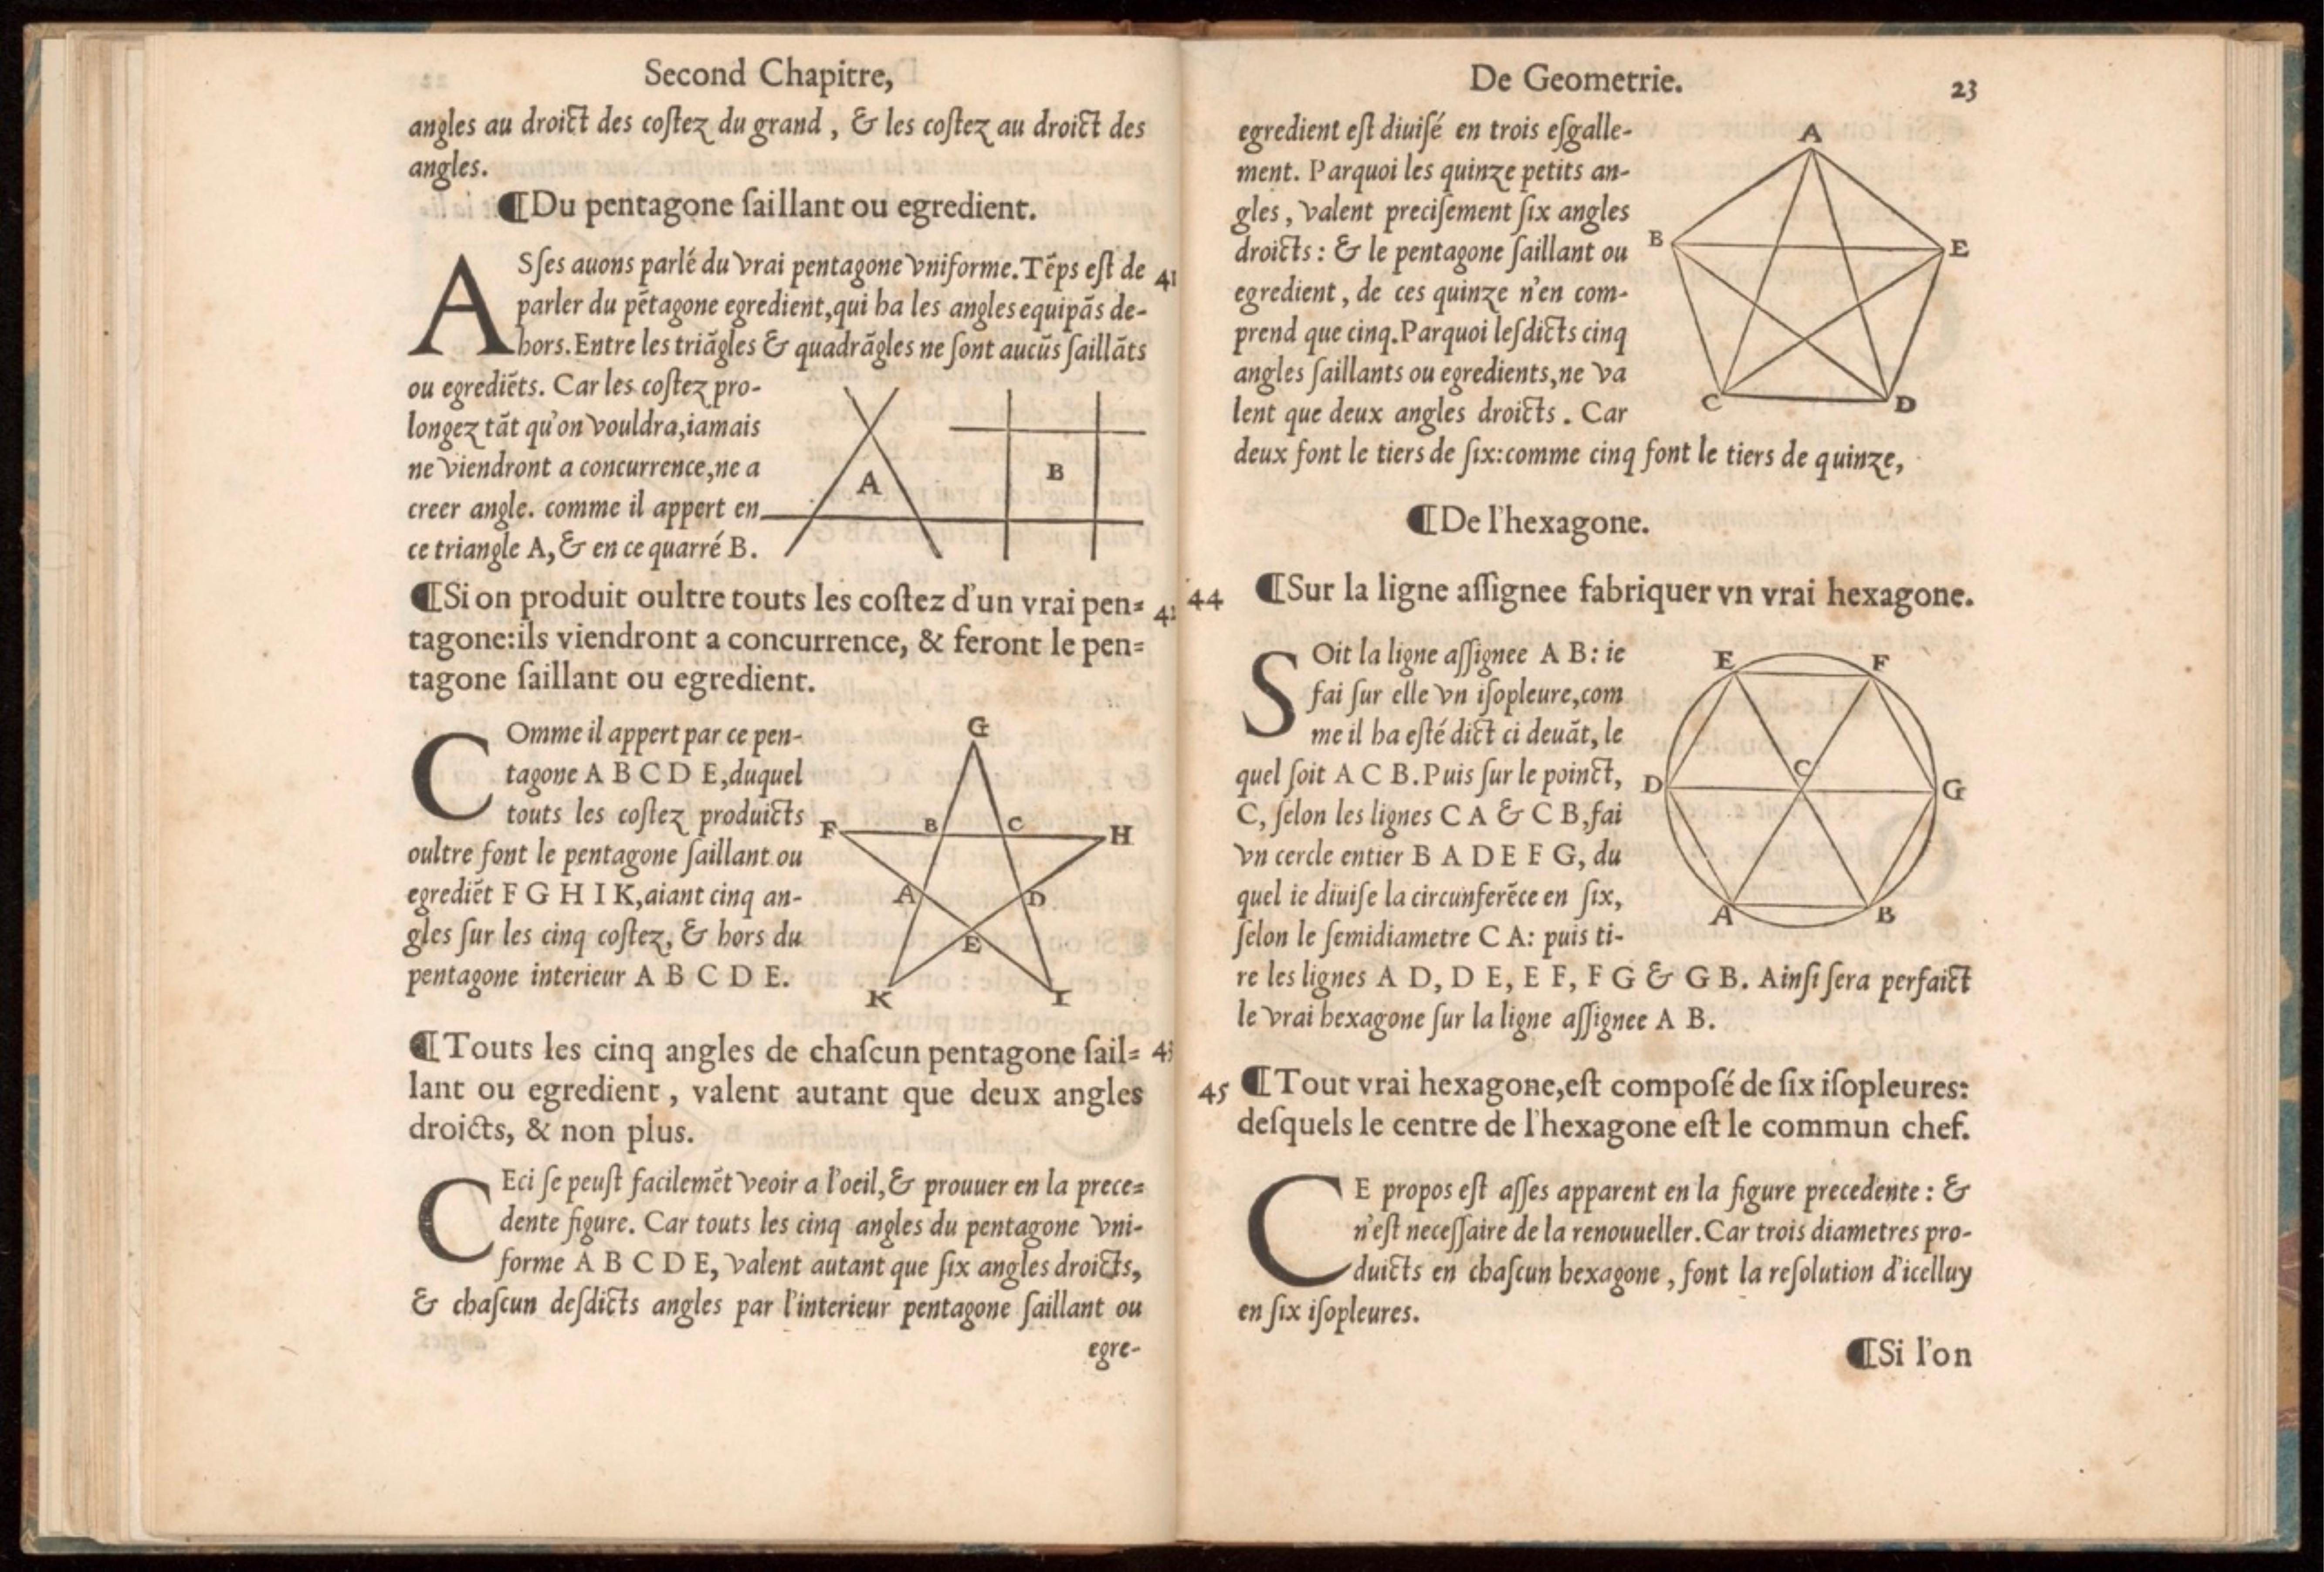 Second Chapitre,
angles au droict des coſtez du grand , & les coſtez au droict des
angles.
¶Du pentagone ſaillant ou egredient.
ASſes auons parlé du vrai pentagone vniforme.Tẽps eſt de
41
parler du pẽtagone egredient,qui ha les angles equipãs de-
hors.Entre les triãgles & quadrãgles ne ſont aucũs ſaillãts
ou egrediẽts. Car les coſtez pro-
longez tãt qu'on vouldra,iamais
ne viendront a concurrence,ne a
creer angle. comme il appert en
ce triangle A,& en ce quarré B.
A
B
¶Si on produit oultre touts les coſtez d'un vrai pen=
tagone:ils viendront a concurrence, & feront le pen=
tagone ſaillant ou egredient.
COmme il appert par ce pen-
tagone A B C D E,duquel
touts les coſtez produicts
oultre font le pentagone ſaillant ou
egrediẽt F G H I K,aiant cinq an-
gles ſur les cinq coſtez, & hors du
pentagone interieur A B C D E.
G
F B C H
A D
E
K I
¶Touts les cinq angles de chaſcun pentagone ſail=
lant ou egredient , valent autant que deux angles
droicts, & non plus.
CEci ſe peuſt facilemẽt veoir a l'oeil,& prouuer en la prece=
dente figure. Car touts les cinq angles du pentagone vni-
forme A B C D E, valent autant que ſix angles droicts,
& chaſcun deſdicts angles par l'interieur pentagone ſaillant ou
egre-
De Geometrie.
23
egredient eſt diuiſé en trois eſgalle-
ment. Parquoi les quinze petits an-
gles , valent preciſement ſix angles
droicts : & le pentagone ſaillant ou
egredient , de ces quinze n'en com-
prend que cinq.Parquoi leſdicts cinq
angles ſaillants ou egredients,ne va
lent que deux angles droicts . Car
deux font le tiers de ſix:comme cinq font le tiers de quinze,
A
B E
C D
¶De l'hexagone.
44 ¶Sur la ligne aſſignee fabriquer vn vrai hexagone.
SOit la ligne aſſignee A B: ie
fai ſur elle vn iſopleure,com
me il ha eſté dict ci deuãt, le
quel ſoit A C B.Puis ſur le poinct,
C, ſelon les lignes C A & C B,fai
vn cercle entier B A D E F G, du
quel ie diuiſe la circunferẽce en ſix,
ſelon le ſemidiametre C A: puis ti-
re les lignes A D, D E, E F, F G & G B. Ainſi ſera perfaict
le vrai hexagone ſur la ligne aſſignee A B.
E F
D C G
A B
45 ¶Tout vrai hexagone,eſt compoſé de ſix iſopleures:
deſquels le centre de l'hexagone eſt le commun chef.
CE propos eſt aſſes apparent en la figure precedente : &
n'eſt neceſſaire de la renouueller.Car trois diametres pro-
duicts en chaſcun hexagone , font la reſolution d'icelluy
en ſix iſopleures.
¶Si l'on